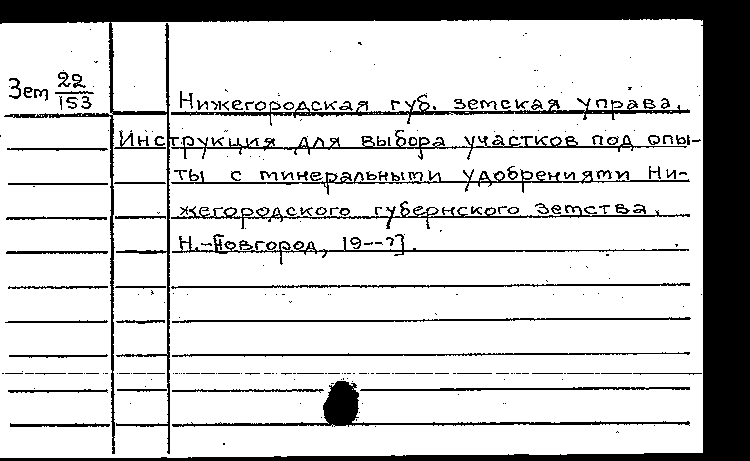 Зем 22/153
Нижегородская губ. земская управа.
Инструкция для выбора участков под опы-
ты с минеральными удобрениями Ни-
жегородского губернского земства.
Н.-[Новгород, 19--?].